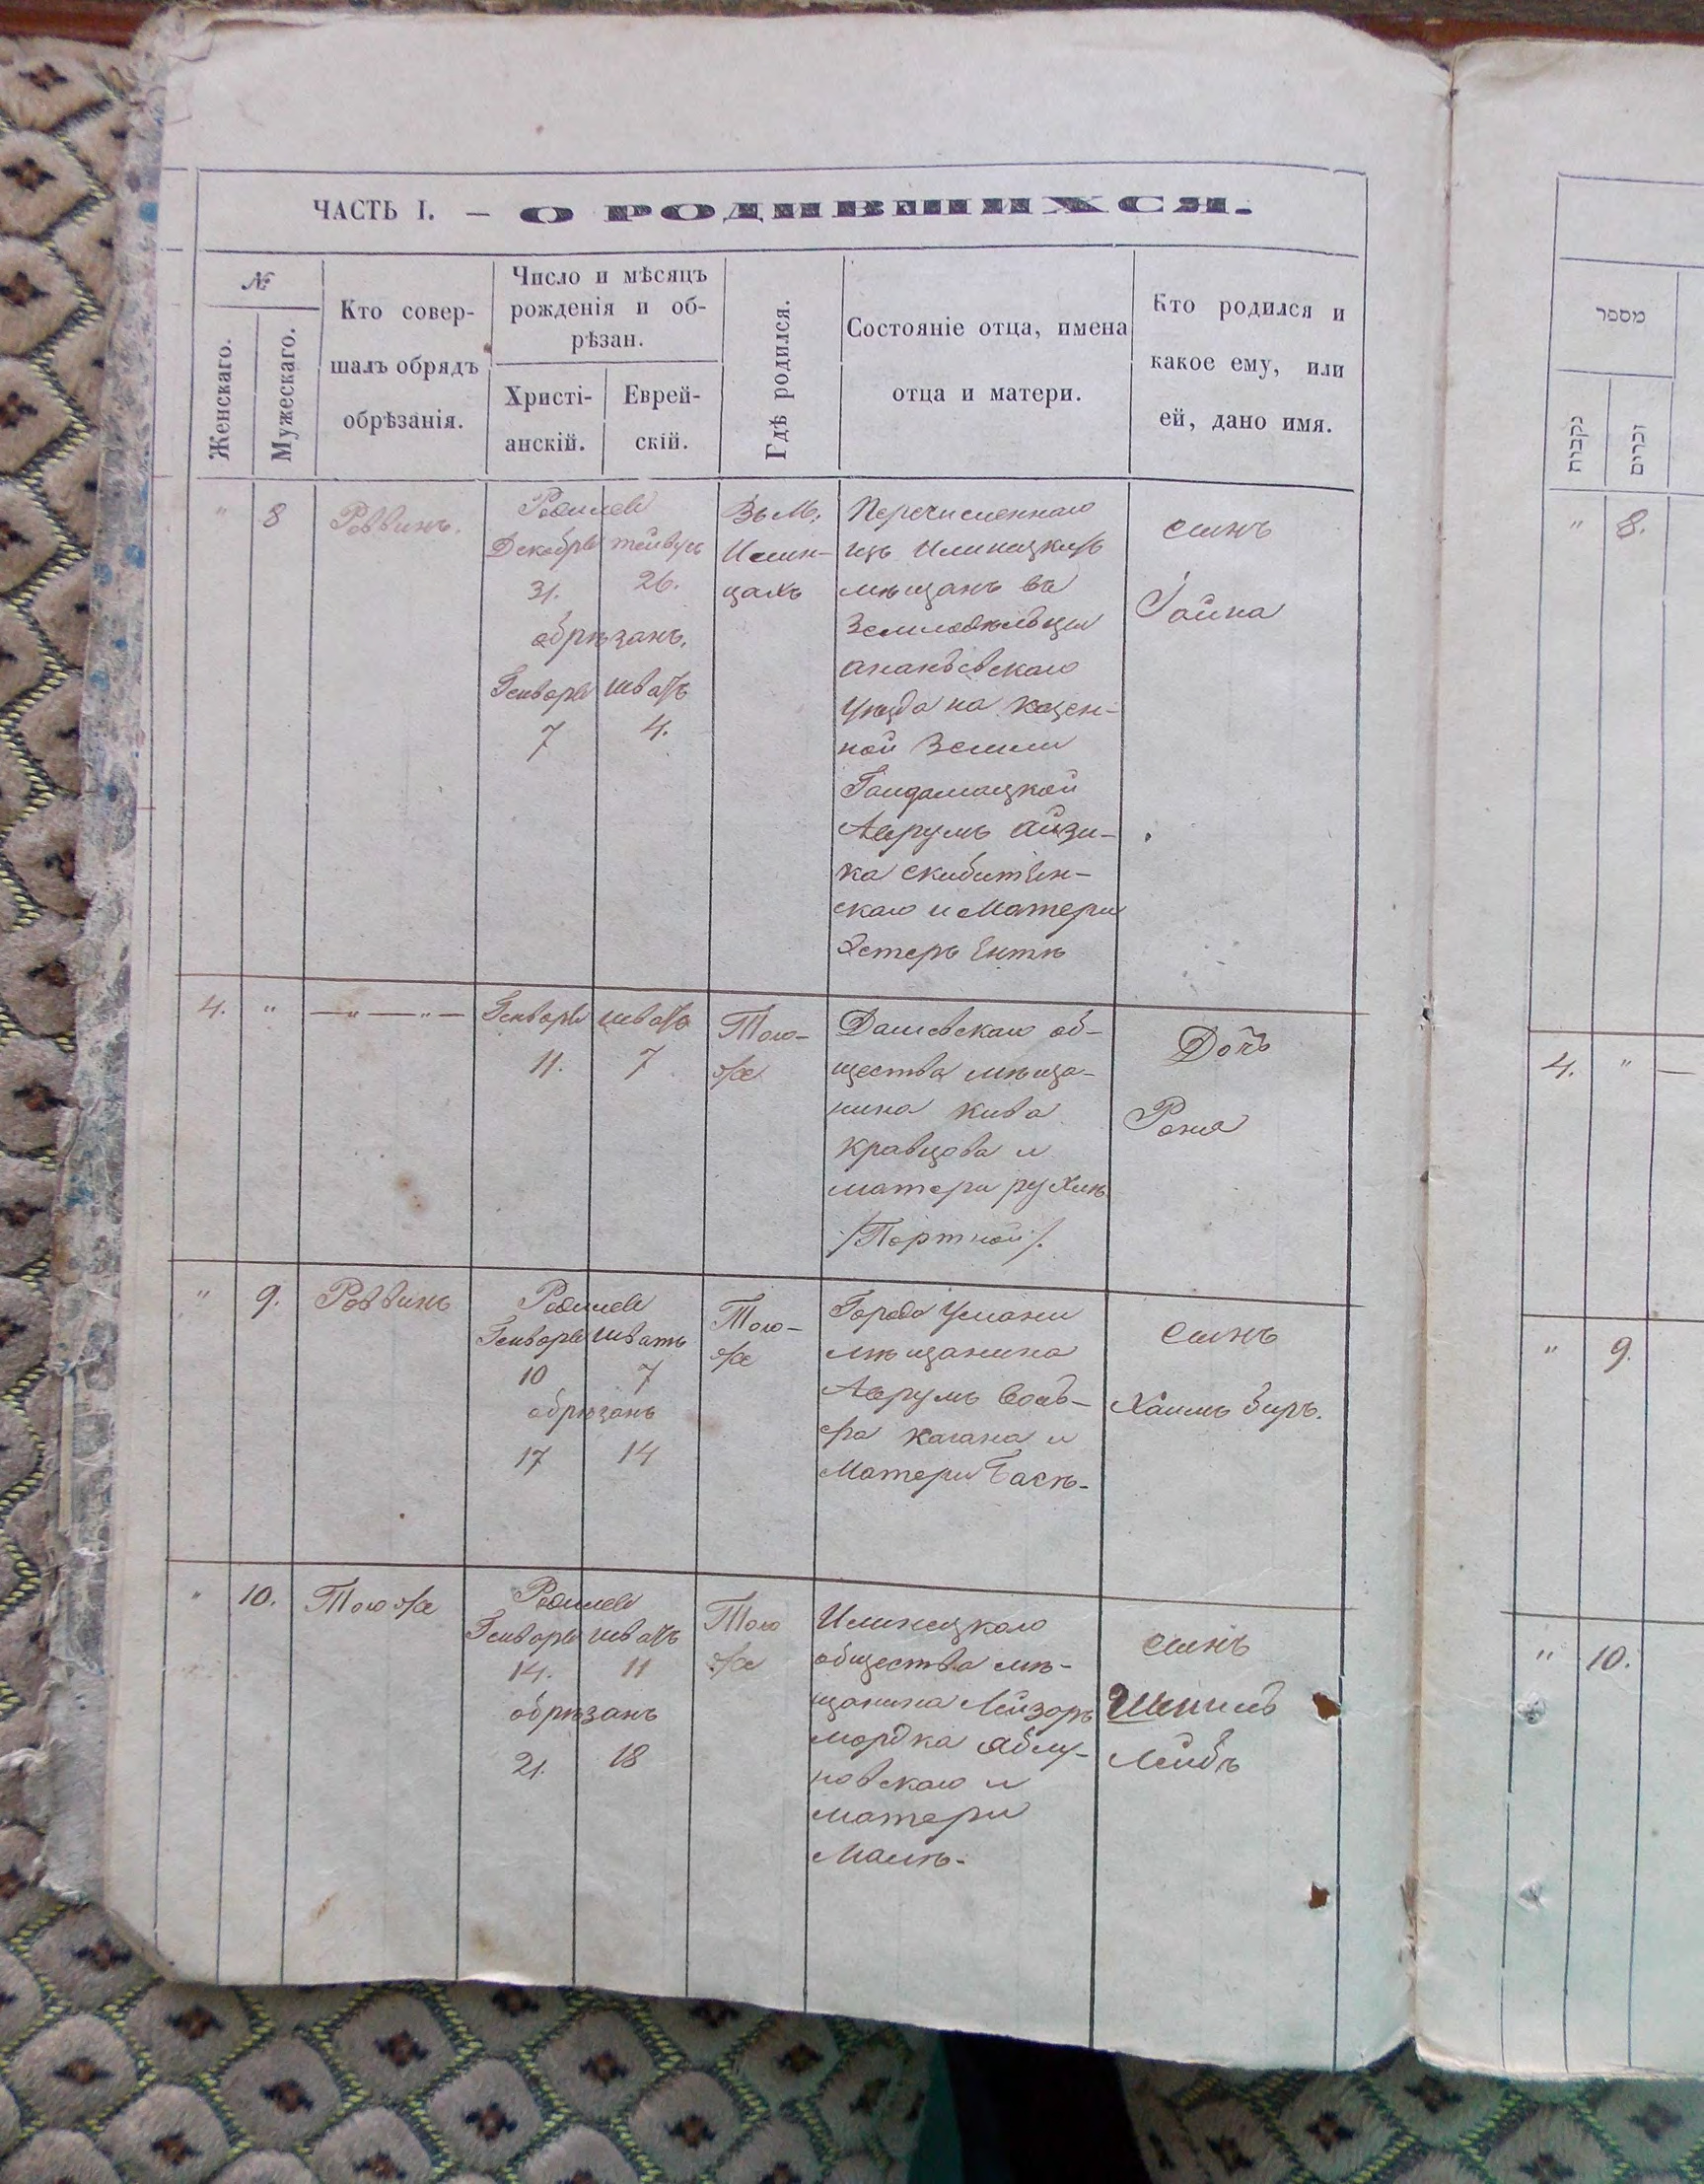 ЧАСТЬ I. — О РОДИВШИХСЯ.
№
Женскаго.
Мужескаго.
Кто совер-
шалъ обрядъ
обрѣзанія.
Число и мѣсяцъ
рожденія и об-
рѣзан.
Христі-
анскій.
Еврей-
скій.
Гдѣ родился.
Состояніе отца, имена
отца и матери.
Кто родился и
какое ему, или
ей, дано имя.
" 8 Раввинъ.
Родился
Декабря тейвусъ
31. 26.
обрѣзанъ.
Генваря шватъ
7 4.
Въ М.
Илин-
цахъ
Перечисленнаго
изъ Илинецкихъ
мѣщанъ въ
Земледѣльцы
ананьевскаго
Уѣзда на казен-
ной Земли
Гайдамацкой
Аврумъ айзи-
ка скибитин-
скаго и Матери
Эстеръ Ентѣ
сынъ
4. " — " — " —
Генваря шватъ
11. 7
Того-
же
Дашевскаго об-
щества мѣща-
нина кива
кравцова и
матери рухлѣ
/Портной/.
Дочь
" 9. Раввинъ
Родился
Генваря шватъ
10 7
обрѣзанъ
17 14
Того-
же
Города Умани
мѣщанина
Аврумъ
кагана и
Матери Басѣ-
сынъ
Хаимъ Беръ.
" 10. Того же
Родился
Генваря шватъ
14. 11
обрѣзанъ
21. 18
Того
же
Илинецкаго
общества мѣ-
щанина Лейзоръ
мордка Яблу-
новскаго и
матери
Малѣ-
сынъ
Лейбъ
מספר
נקבות
זכרים
" 8.
4. " —
" 9.
" 10.